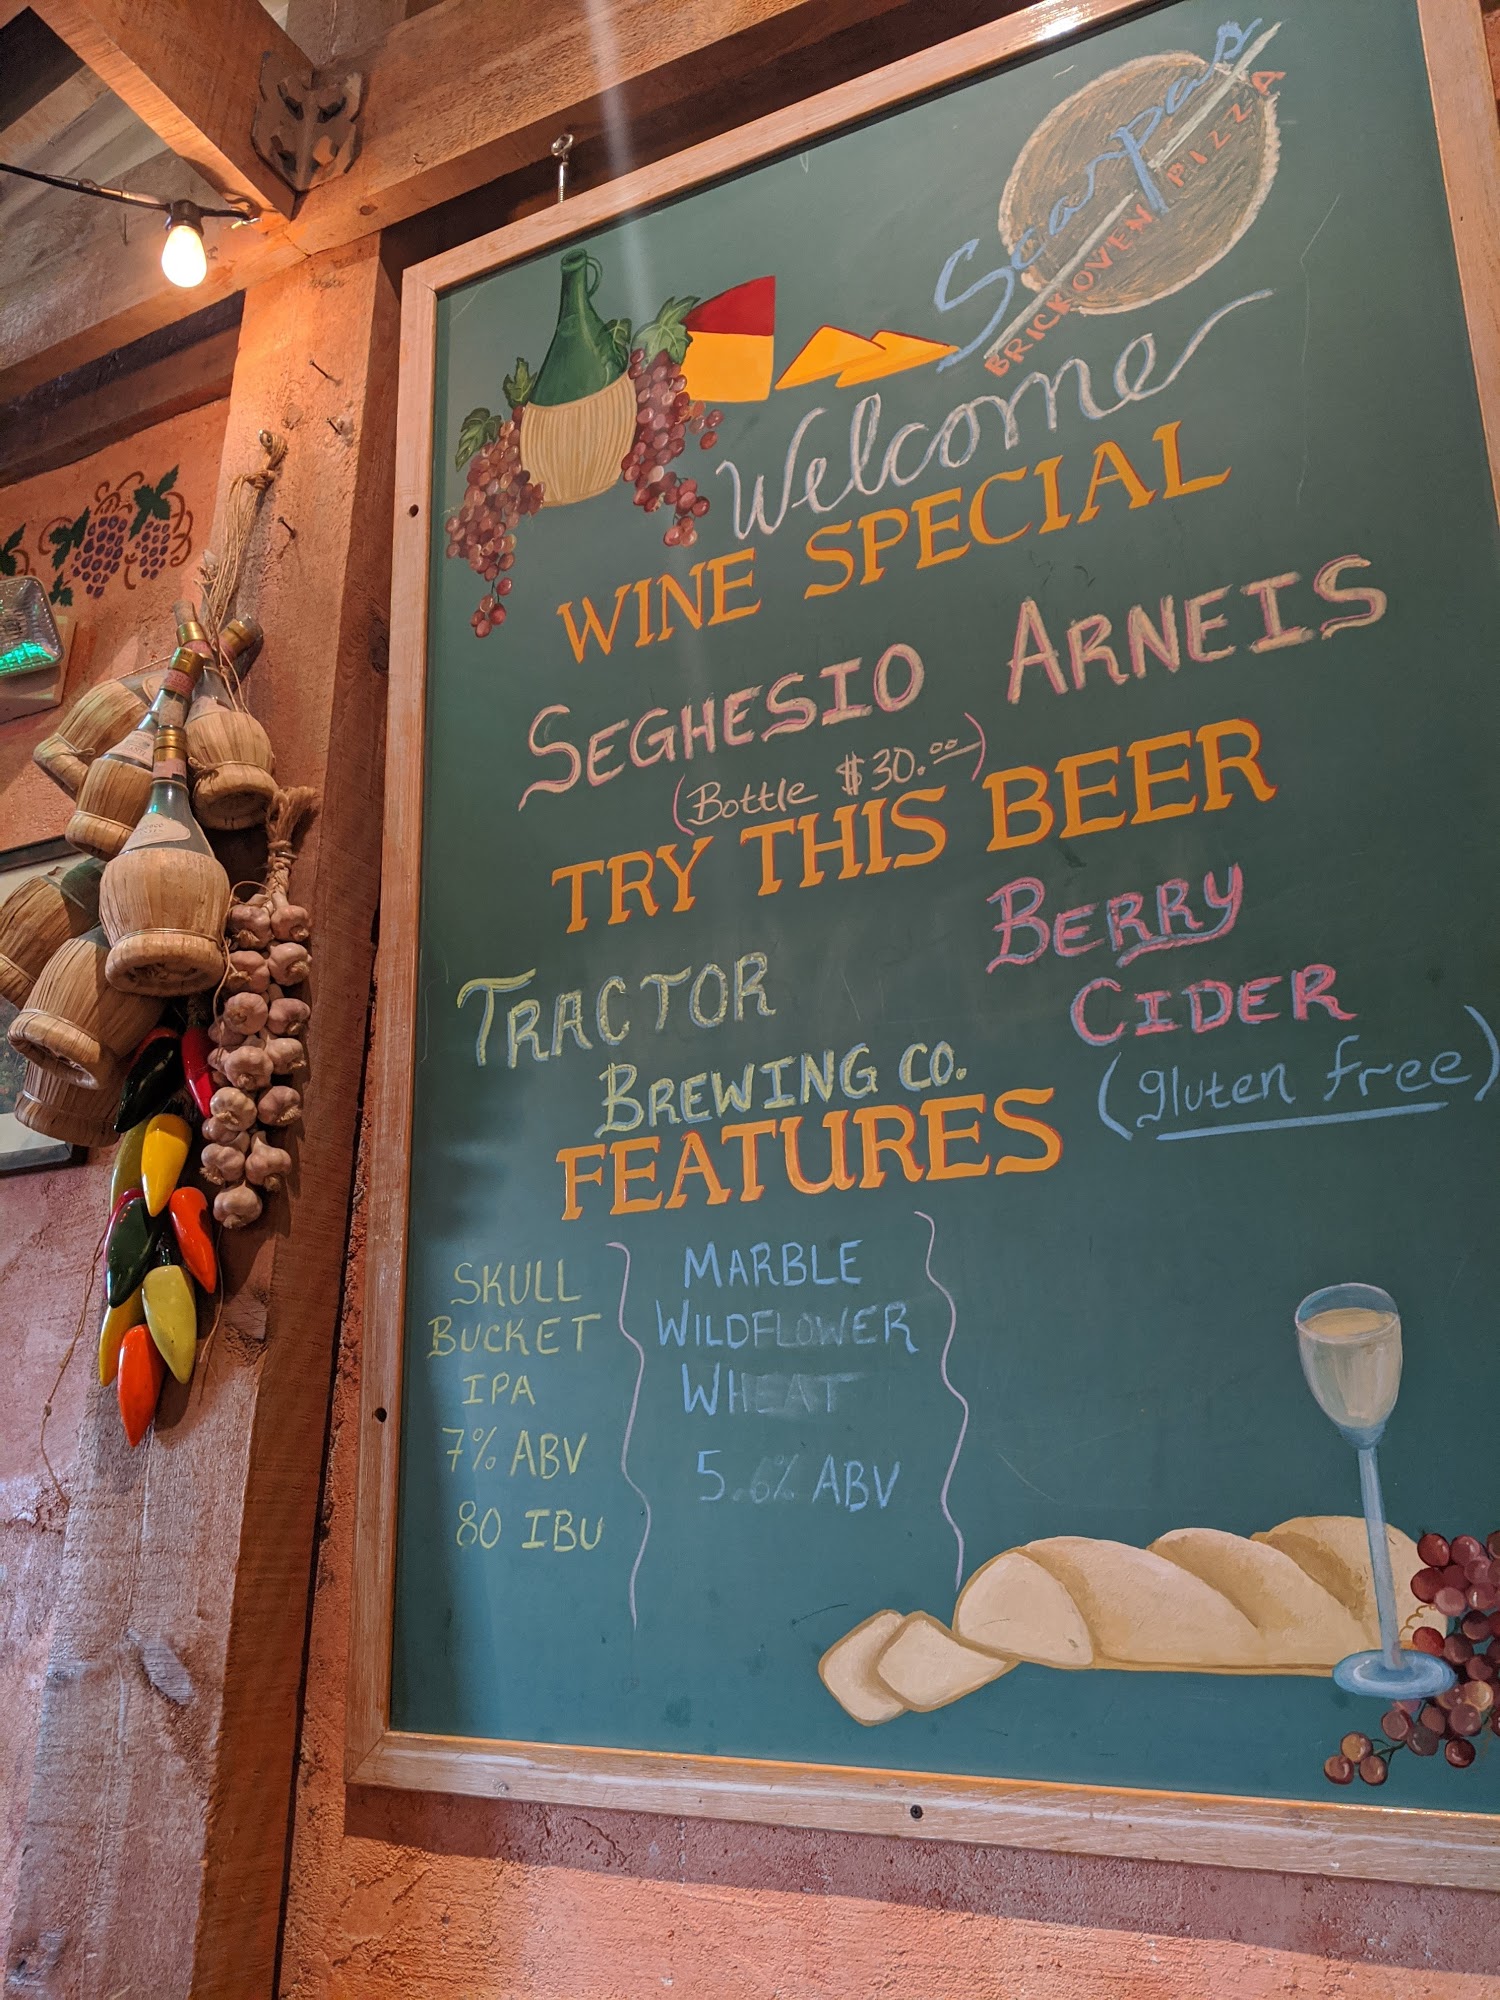 Scarpas
BRICK OVEN PIZZA
Welcome
WINE SPECIAL
SEGHESIO ARNEIS
(Bottle $30.00)
TRY THIS BEER
TRACTOR
BREWING CO.
BERRY
CIDER
(gluten free)
FEATURES
SKULL
BUCKET
IPA
7% ABV
80 IBU
MARBLE
WILDFLOWER
WHEAT
5.6% ABV